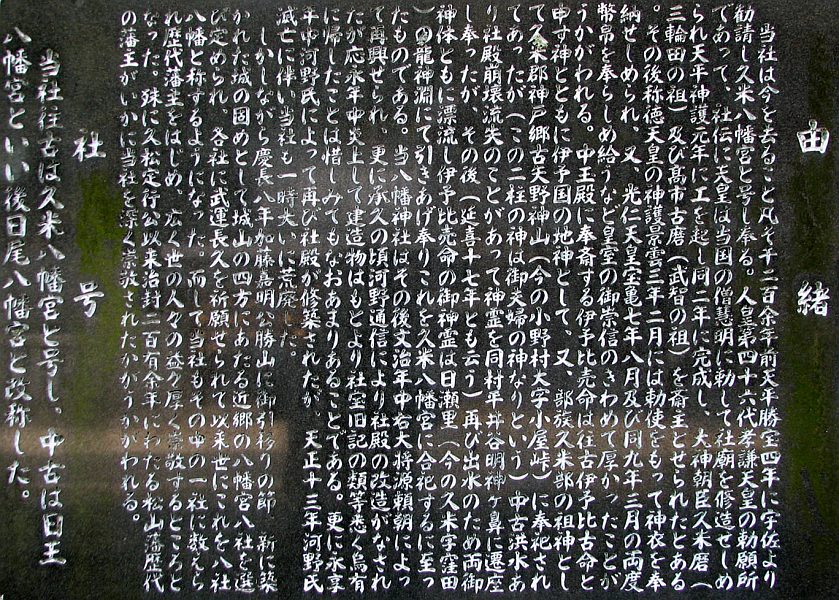 由緒
当社は今を去ること凡そ千二百余年前天平勝宝四年に宇佐より
勧請し久米八幡宮と号し奉る。人皇第四十六代孝謙天皇の勅願所
であって、社伝に天皇は当国の僧慧明に勅して社廟を修造せしめ
られ天平神護元年に工を起し同二年に完成し、大神朝臣久米麿(
三輪田の祖)及び髙市古麿(武智の祖)を斎主とせられたとある
。その後称徳天皇の神護景雲三年二月には勅使をもって神衣を奉
納せしめられ、又、光仁天皇宝亀七年八月及び同九年三月の両度
幣帛を奉らしめ給うなど皇室の御崇信のきわめて厚かったことが
うかがわれる。中王殿に奉斎する伊予比売命は往古伊予比古命と
申す神とともに伊予国の地神として、又、部族久米部の祖神とし
て久米郡神戸郷古天野神山(今の小野村大字小屋峠)に奉祀され
てあったが(この二柱の神は御夫婦の神なりという)中古洪水あ
り社殿崩壊流失のことがあって神霊を同村平井谷明神ヶ鼻に遷座
し奉ったが、その後(延喜十七年とも云う)再び出水のため両御
神体ともに漂流し伊予比売命の御神霊は日瀬里(今の久米字窪田
)の龍神淵にて引きあげ奉りこれを久米八幡宮に合祀するに至っ
たものである。当八幡神社はその後文治年中右大将源頼朝によっ
て再興せられ、更に承久の頃河野通信により社殿の改造がなされ
たが応永年中炎上して建造物はもとより社宝旧記の類等悉く烏有
に帰したことは惜しみてもなおあまりあることである。更に永享
年中河野氏によって再び社殿が修築されたが、天正十三年河野氏
滅亡に伴い当社も一時大いに荒廃した。
しかしながら慶長八年加藤嘉明公勝山に御引移りの節、新に築
かれた城の固めとして城山の四方にあたる近郷の八幡宮八社を選
び定められ、各社に武運長久を祈願せられて以来世にこれを八社
八幡と称するようになった。而して当社もその中の一社に数えら
れ歴代藩主をはじめ、広く世の人々の益々厚く崇敬するところと
なった。殊に久松定行公以来治封二百有余年にわたる松山藩歴代
の藩主がいかに当社を深く崇敬されたかがうかがわれる。
社号
当社往古は久米八幡宮と号し、中古は日王
八幡宮といい後日尾八幡宮と改称した。